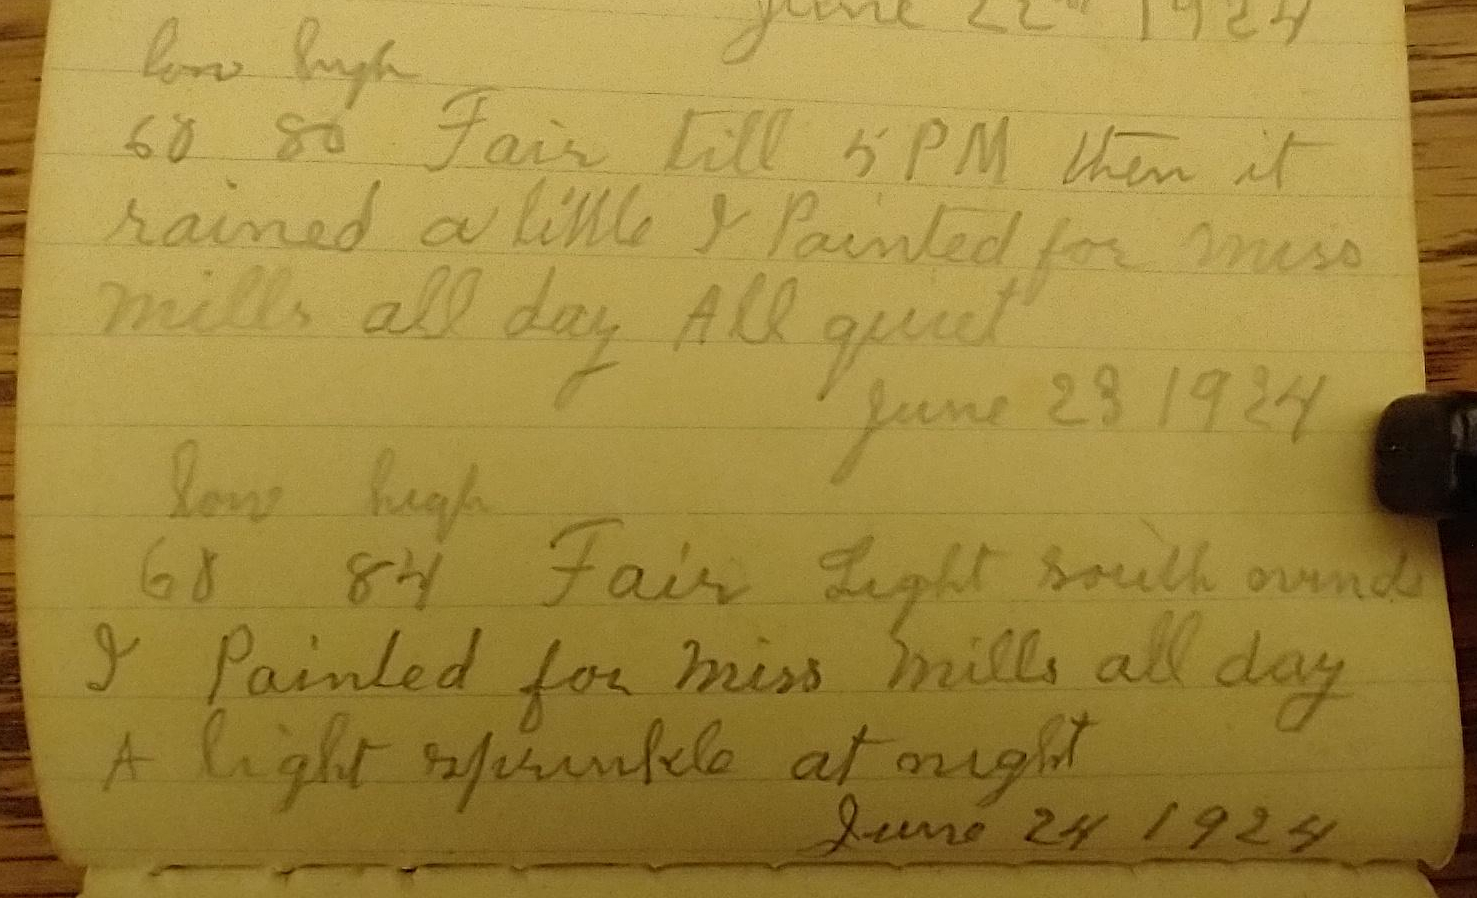 June 22nd 1924
low high
68 80 Fair till 5 PM then it
rained a little I Painted for miss
mills all day All quiet
June 23 1924
low high
68 84 Fair Light south winds
I Painted for miss mills all day
A light sprinkle at night
June 24 1924